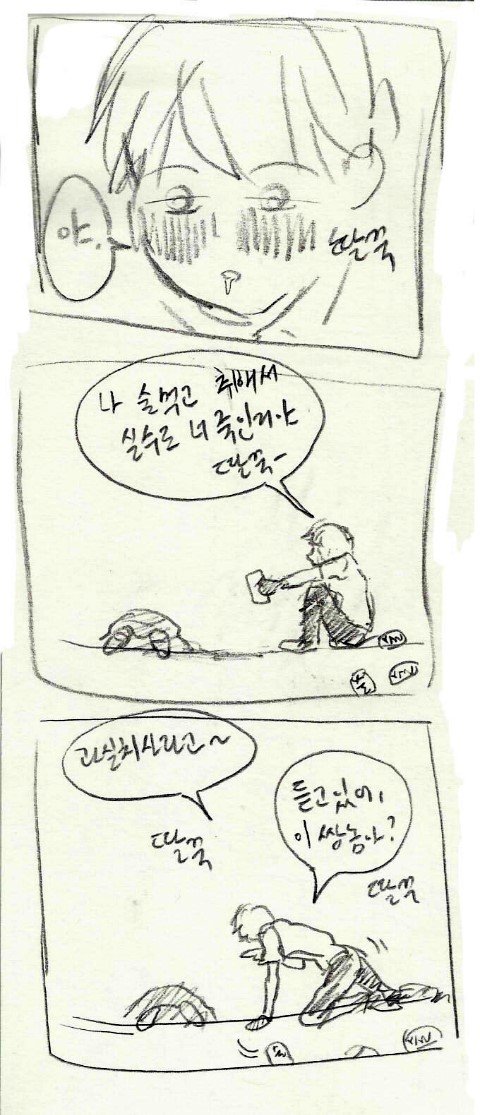 야.
딸꾹
나 술먹고 취해서
실수로 너 죽인거야
딸꾹-
과실치사라고~
딸꾹
듣고있어,
이 쌍놈아?
딸꾹
술